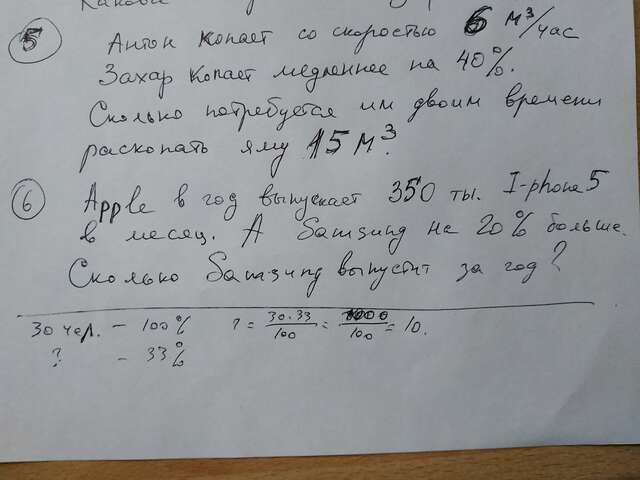 5 Антон копает со скоростью 6 м³/час
Захар копает медленнее на 40%.
Сколько потребуется им двоим времени
раскопать яму 15 м³.
6 Apple в год выпускает 350 ты. I-phone 5
в месяц. А Samsung на 20% больше.
Сколько Samsung выпустит за год?
30 чел. – 100% ? = 30·33/100 = 1000/100 = 10.
? – 33%